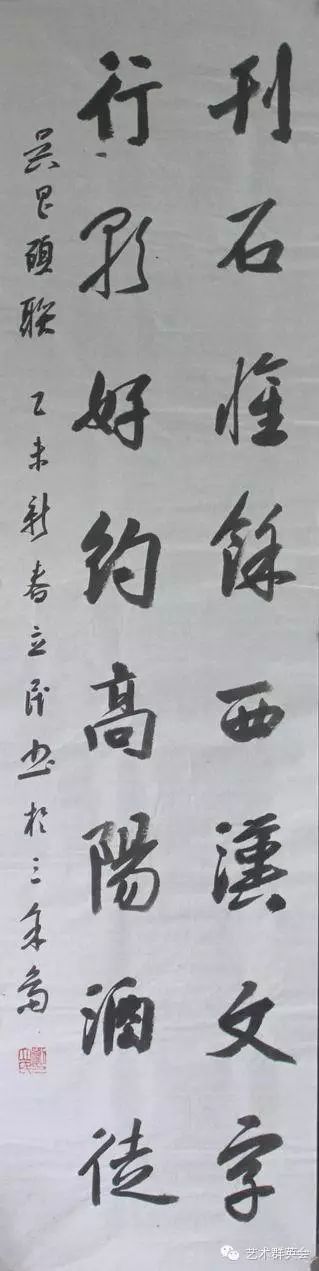 刊石惟餘西漢文字
行歌好約高陽酒徒
吴昌碩聯 乙未新春立民书於三余斋
艺术群英会